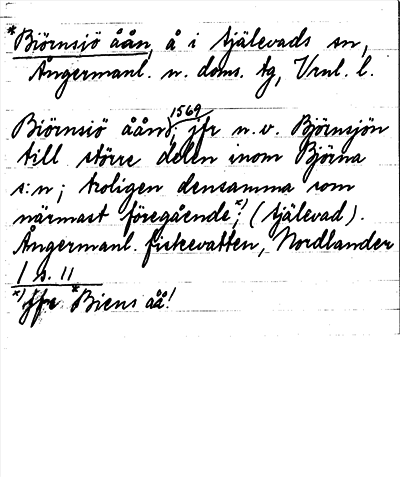 *Biörnsjö åån, å i Själevads sn,
Ångermanl. n. doms. tg, Vrnl. l.
1569
Biörnsiö åån; jfr n. v. Björnsjön
till större delen inom Björna
s:n; troligen densamma som
närmast föregående;*) (Själevad).
Ångermanl. fiskevatten, Nordlander
1 s. 11
*) Jfr *Biens åå!